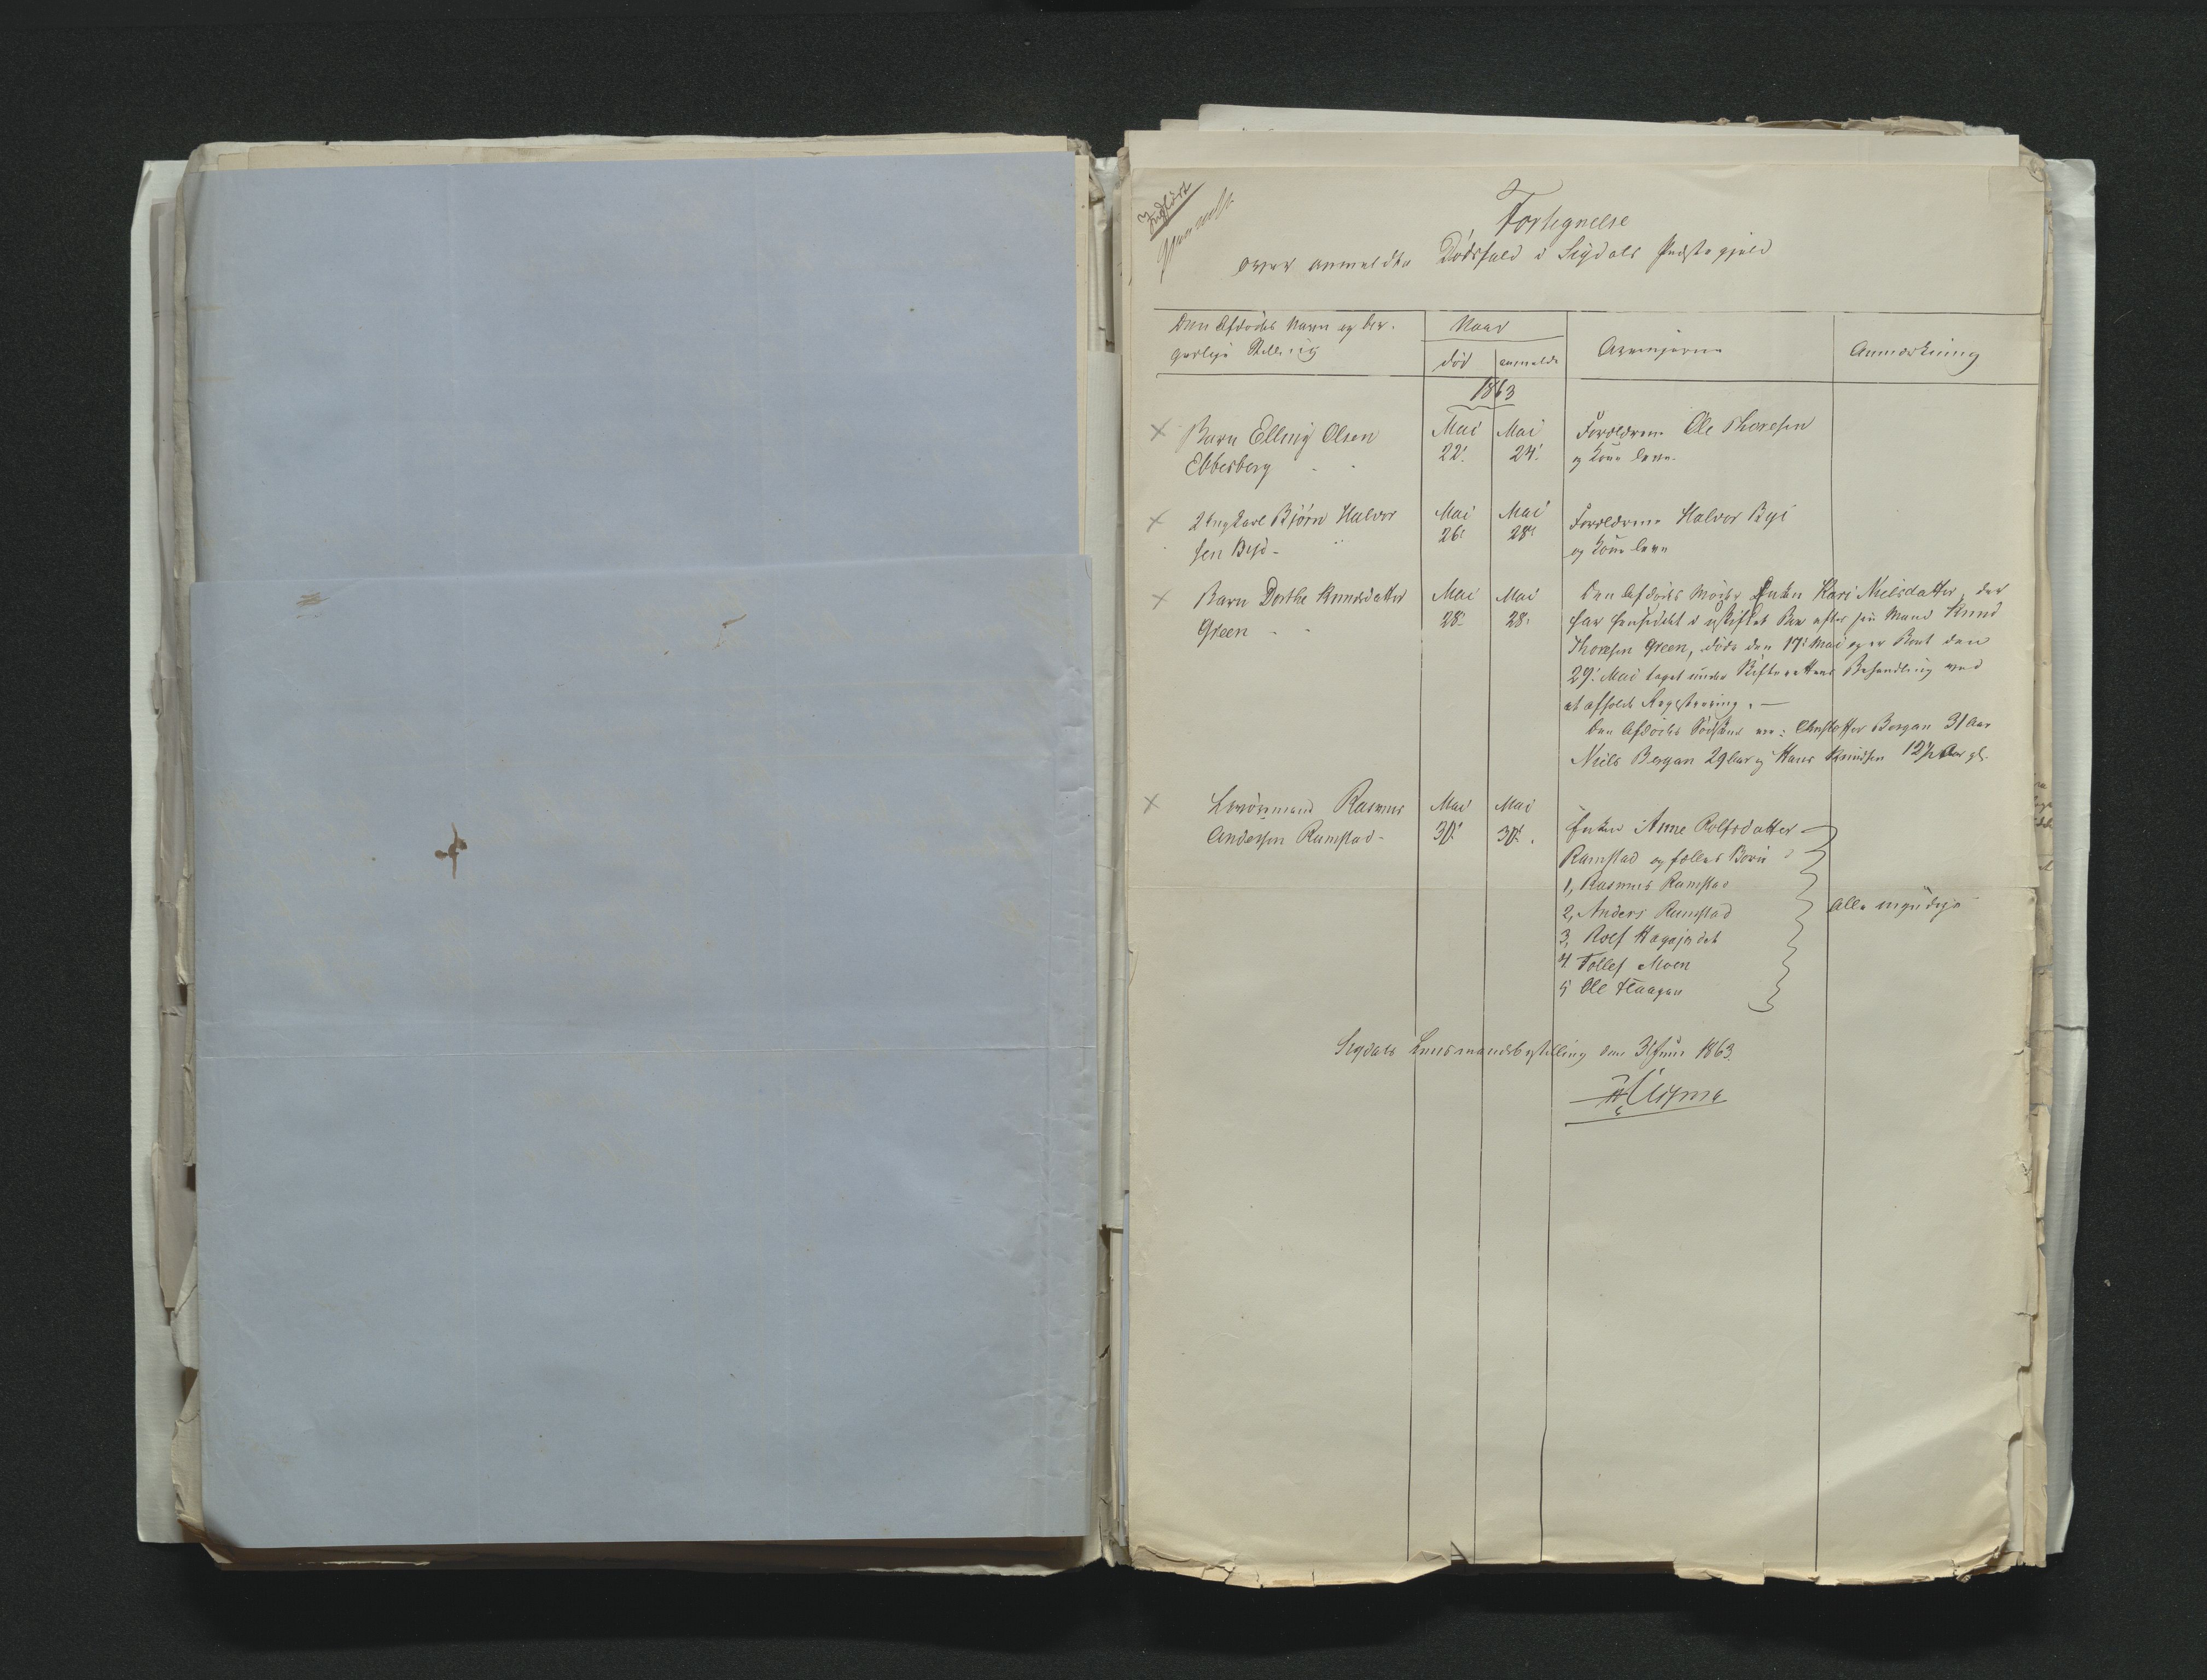 Indført
Fortegnelse
over anmeldte Dødsfald i Sigdals Præstegjeld
Den Afdødes Navn og bor-
gerlige Stilling
Naar
død
anmeldt
Arvingerne
Anmærkning
1863
Barn Elling Olsen
Ebbesberg
Mai
22.
Mai
24.
Forældrene Ole Thoresen
og Kone leve.
Ungkarl Björn Halvor
sen
Mai
26.
Mai
28.
Forældrene Halvor
og Kone leve
Barn Dorthe Knudsdatter
Green
Mai
28.
Mai
28.
Den Afdødes Moder Enken Kari Nielsdatter, der
har hensiddet i uskiftet Boe efter sin Mand Knud
Thoresen Green, døde den 17. Mai og er Boet den
29. Mai taget under Skifterettens Behandling ved
at afholde Registrering. —
Den Afdødes Södskende ere: Christoffer Bergan 31 Aar
Niels Bergan 29 Aar og Hans Knudsen 12½ Aar gl.
Rasmus
Andersen Ramstad
Mai
30.
Mai
30.
Enken Anne Rolfsdatter
Ramstad og fælles Börn
1, Rasmus Ramstad
2, Anders Ramstad
3, Rolf
4 Tollef Moen
5 Ole Haagan
Alle myndige
Sigdals Lensmandsbestilling den 31 1863.